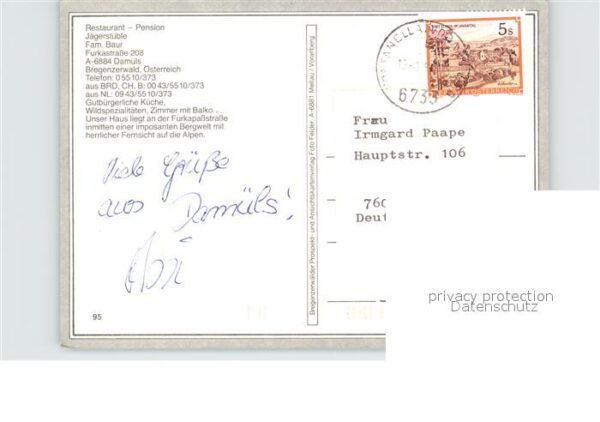 Restaurant – Pension
Jägerstüble
Fam. Baur
Furkastraße 208
A-6884 Damüls
Bregenzerwald, Österreich
Telefon: 05510/373
aus BRD, CH, B: 0043/5510/373
aus NL: 0943/5510/373
Gutbürgerliche Küche,
Wildspezialitäten, Zimmer mit Balko..
Unser Haus liegt an der Furkapaßstraße
inmitten einer imposanten Bergwelt mit
herrlicher Fernsicht auf die Alpen.
Viele Grüße
aus Damüls!
95
Bregenzerwälder Prospekt- und Ansichtskartenverlag Foto Felder, A-6881 Mellau / Vorarlberg
6733
5s
Frau
Irmgard Paape
Hauptstr. 106
760
Deut
privacy protection
Datenschutz